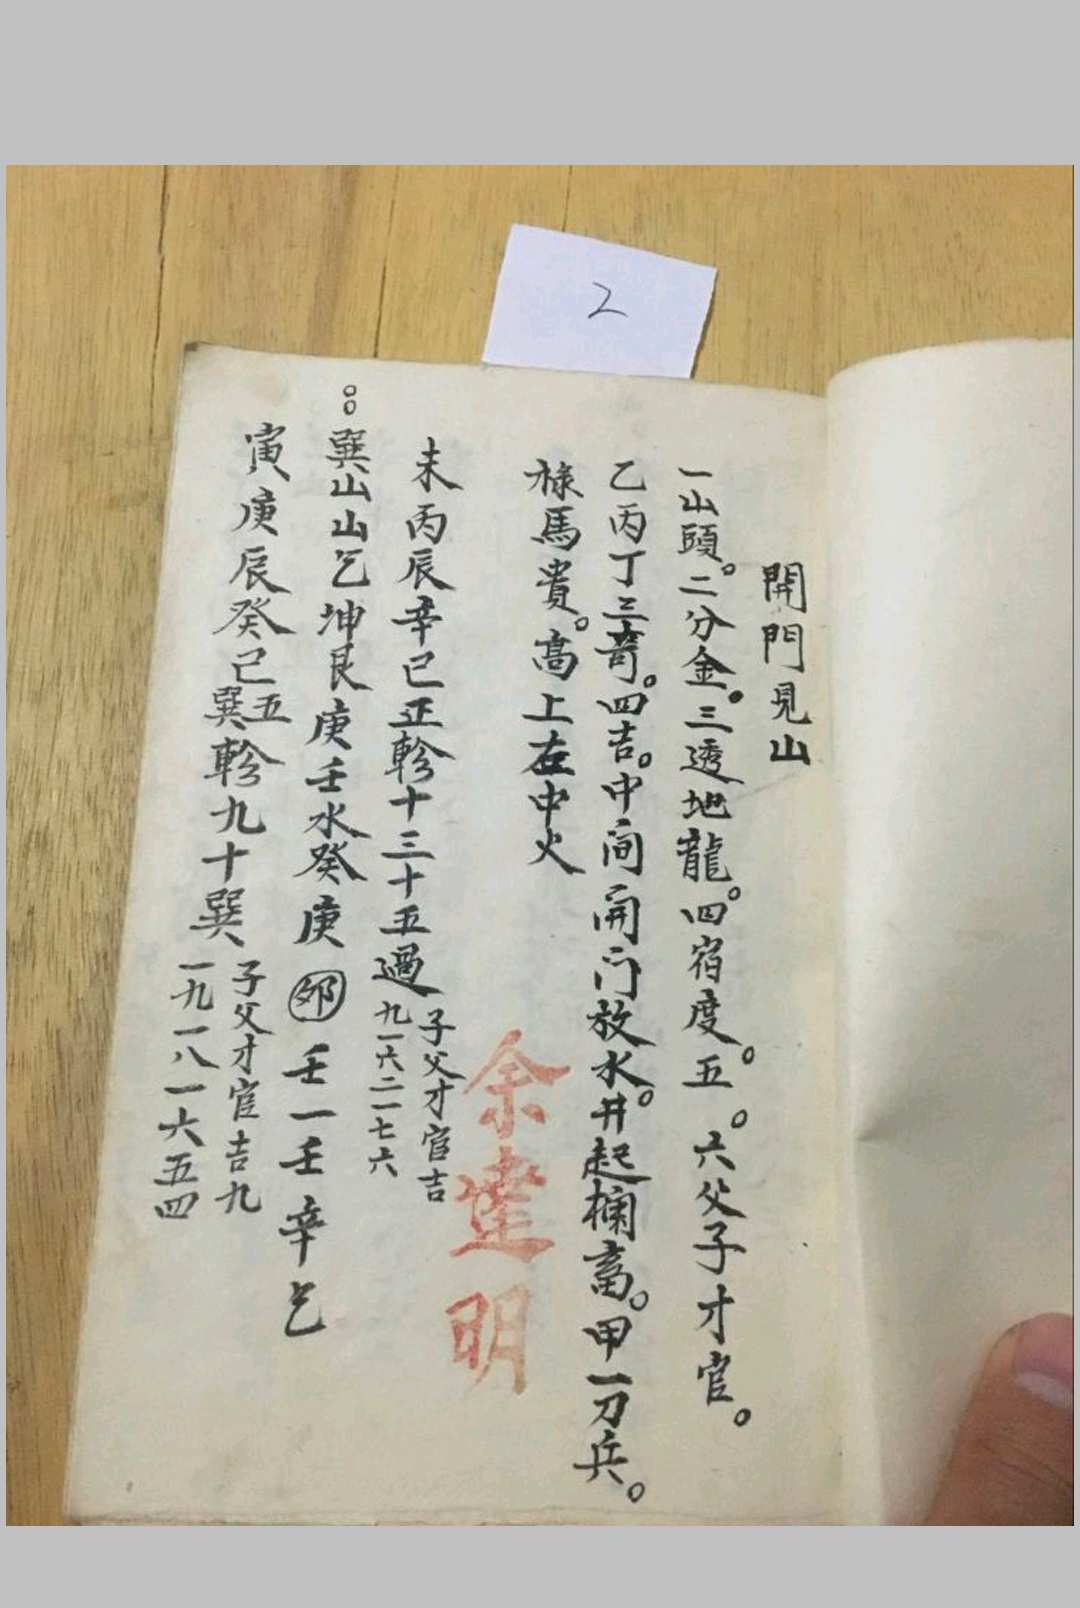 2
開門見山
一出頭。二分金。三透地龍。四宿度。五。六父子才官。
乙丙丁三奇。四吉。中间開门放水。井起欄畜。甲一刀兵。
祿馬貴。高上在中火
未丙辰辛巳正軫十三十五過
子父才官吉
九一六二一七六
余達明
巽山山乞坤艮庚壬水癸庚 壬一壬辛乞
寅庚辰癸己五巽軫九十巽
子父才官吉九
一九一八一六五四